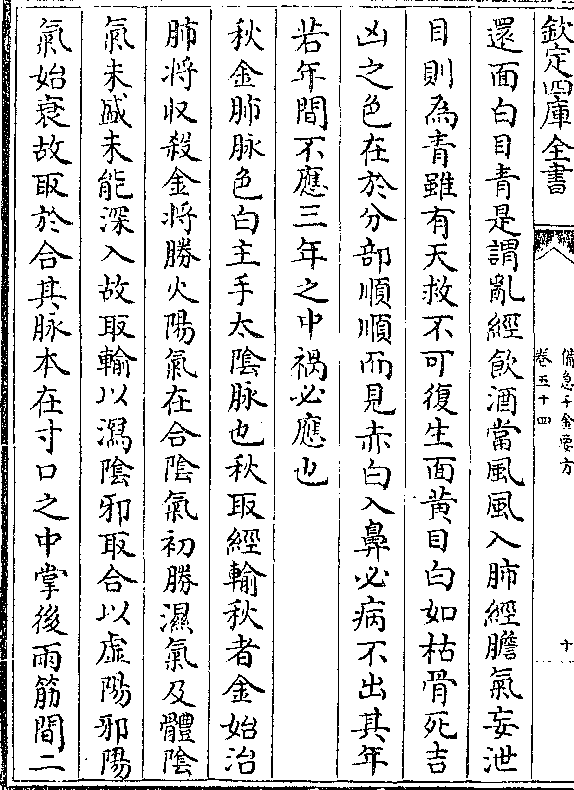 欽定四庫全書
備急千金要方
卷五十四
十
還面白目青是謂亂經飲酒當風風入肺經膽氣妄泄
目則為青雖有天救不可復生面黃目白如枯骨死吉
凶之色在於分部順順而見赤白入鼻必病不出其年
若年間不應三年之中禍必應也
秋金肺脉色白主手太陰脉也秋取經輸秋者金始治
肺將収殺金將勝火陽氣在合陰氣初勝濕氣及體陰
氣未盛未能深入故取輸以瀉陰邪取合以虛陽邪陽
氣始衰故取於合其脉本在寸口之中掌後兩筋間二